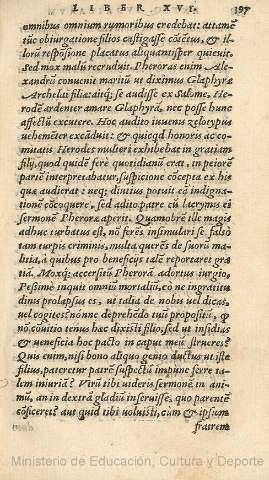 LIBER XVI. 197
omnibus omnium rumoribus credebat: attamē
tūc obiurgatione filios castigasse cōtētus, & il-
lorū respōsione placatus aliquantisper quieuit,
sed mox malū recruduit. Pheroras enim Ale-
xandrū conuenit maritū ut diximus Glaphyræ
Archelai filiæ: aitq́; se audisse ex Salome, He-
rodē ardenter amare Glaphyrā, nec posse hunc
affectū excutere. Hoc audito iuuenis zelotypus
uehemēter excāduit: & quicqd honoris ac co-
mitatis Herodes mulieri exhibebat in gratiam
filij, quod quidē ferè quotidianū erat, in peiorē
partē interpretabatur, suspicione cōcepta ex his
quæ audierat: neq; diutius potuit eā indigna-
tionē cōcoquere, sed adito patre cū lacrymis ei
sermonē Pheroræ aperit. Quamobrē ille magis
adhuc turbatus est, nō ferēs insimulari se falsò
tam turpis criminis, multa querēs de suorū ma-
litia, à quibus pro beneficijs talē reportaret gra-
tiā. Moxq́; accersitū Pherorā adortus iurgio,
Pessime inquit omniū mortaliū, eò ne ingratitu
dinis prolapsus es, ut talia de nobis uel dicas,
uel cogites? nōnne deprehēdo tuū propositū, q̀
nō cōuitio tenus hæc dixisti filio, sed ut insidias
& ueneficia hoc pacto in caput meū strueres?
Quis enim, nisi bono aliquo genio ductus ut iste
filius, pateretur patrē suspectū impune ferre ta-
lem iniuriā? Virū tibi uideris sermonē in ani-
mū, an in dextrā gladiū inseruisse, quo parentē
cōficeret? aut quid tibi uoluisti, cùm & ipsum
fratrem
Ministerio de Educación, Cultura y Deporte